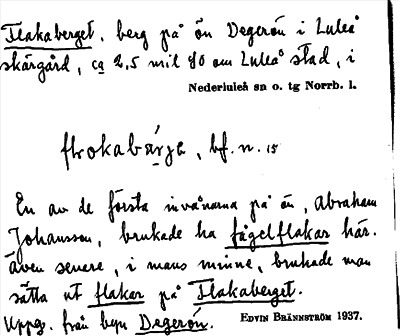 Flakaberget, berg på ön Degerön i Luleå
skärgård, ca 2,5 mil SO om Luleå stad, i
Nederluleå sn o. tg Norrb. l.
flrokabärje, bf. n. 15
En av de första invånarna på ön, Abraham
Johansson, brukade ha fågelflakar här.
Även senere, i mans minne, brukade man
sätta ut flakar på Flakaberget.
Uppg. från byn Degerön. EDVIN BRÄNNSTRÖM 1937.